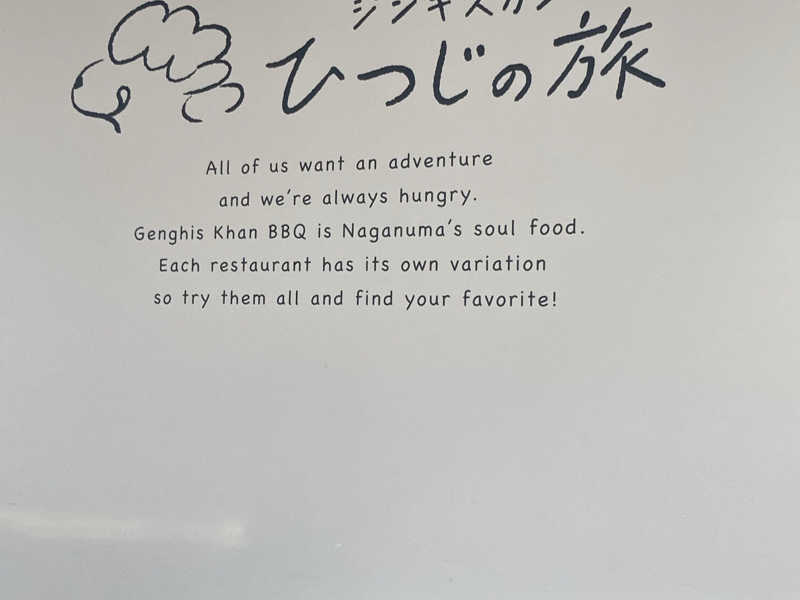 ジンギスカン
ひつじの旅
All of us want an adventure
and we're always hungry.
Genghis Khan BBQ is Naganuma's soul food.
Each restaurant has its own variation
so try them all and find your favorite!